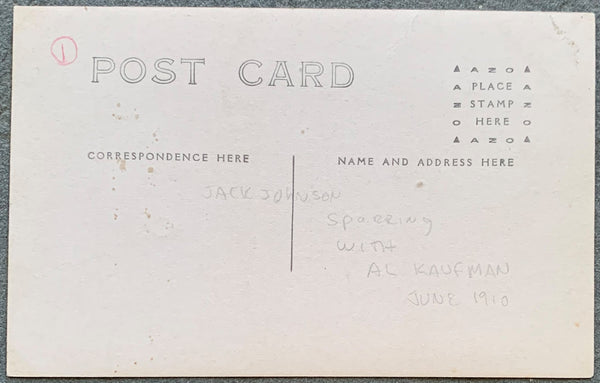 1
POST CARD
▲ A Z O ▲
A PLACE A
Z STAMP Z
O HERE O
▲ A Z O ▲
CORRESPONDENCE HERE
NAME AND ADDRESS HERE
JACK JOHNSON
Sparring
WITH
AL KAUFMAN
JUNE 1910